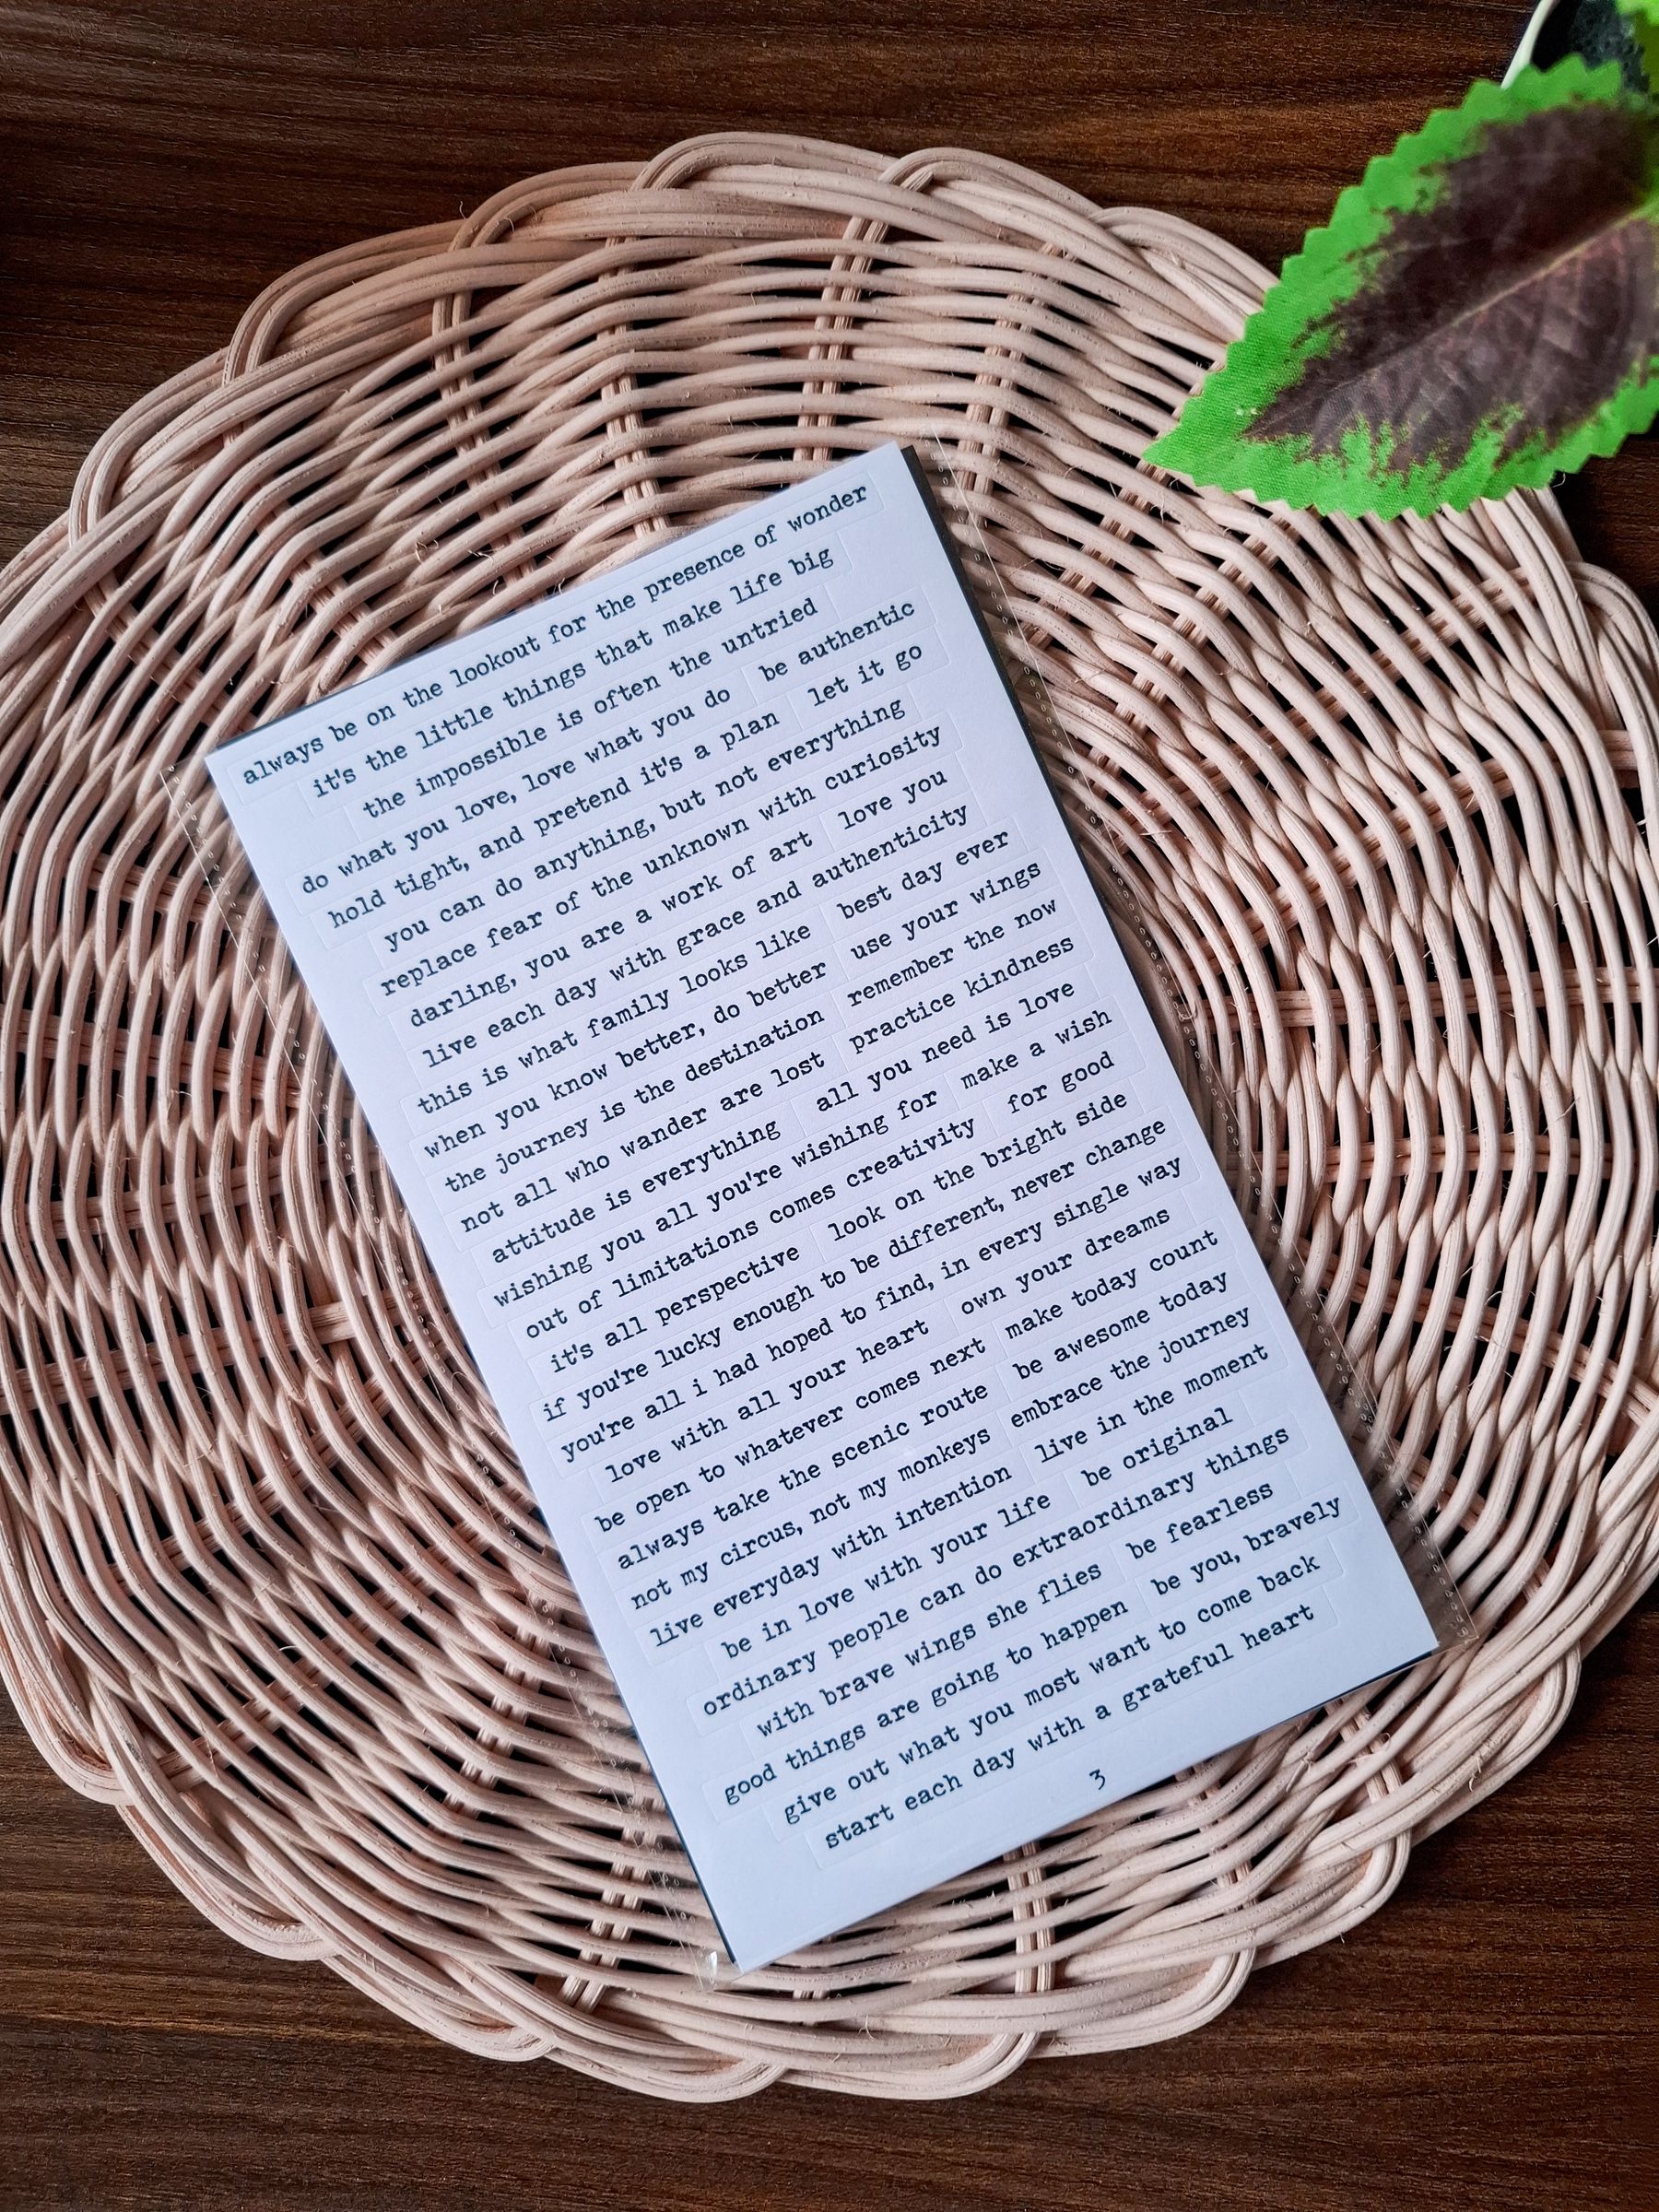 always be on the lookout for the presence of wonder
it's the little things that make life big
the impossible is often the untried
do what you love, love what you do be authentic
hold tight, and pretend it's a plan let it go
you can do anything, but not everything
replace fear of the unknown with curiosity
darling, you are a work of art love you
live each day with grace and authenticity
this is what family looks like best day ever
when you know better, do better use your wings
the journey is the destination remember the now
not all who wander are lost practice kindness
attitude is everything all you need is love
wishing you all you're wishing for make a wish
out of limitations comes creativity for good
it's all perspective look on the bright side
if you're lucky enough to be different, never change
you're all i had hoped to find, in every single way
love with all your heart own your dreams
be open to whatever comes next make today count
always take the scenic route be awesome today
not my circus, not my monkeys embrace the journey
live everyday with intention live in the moment
be in love with your life be original
ordinary people can do extraordinary things
with brave wings she flies be fearless
good things are going to happen be you, bravely
give out what you most want to come back
start each day with a grateful heart
3